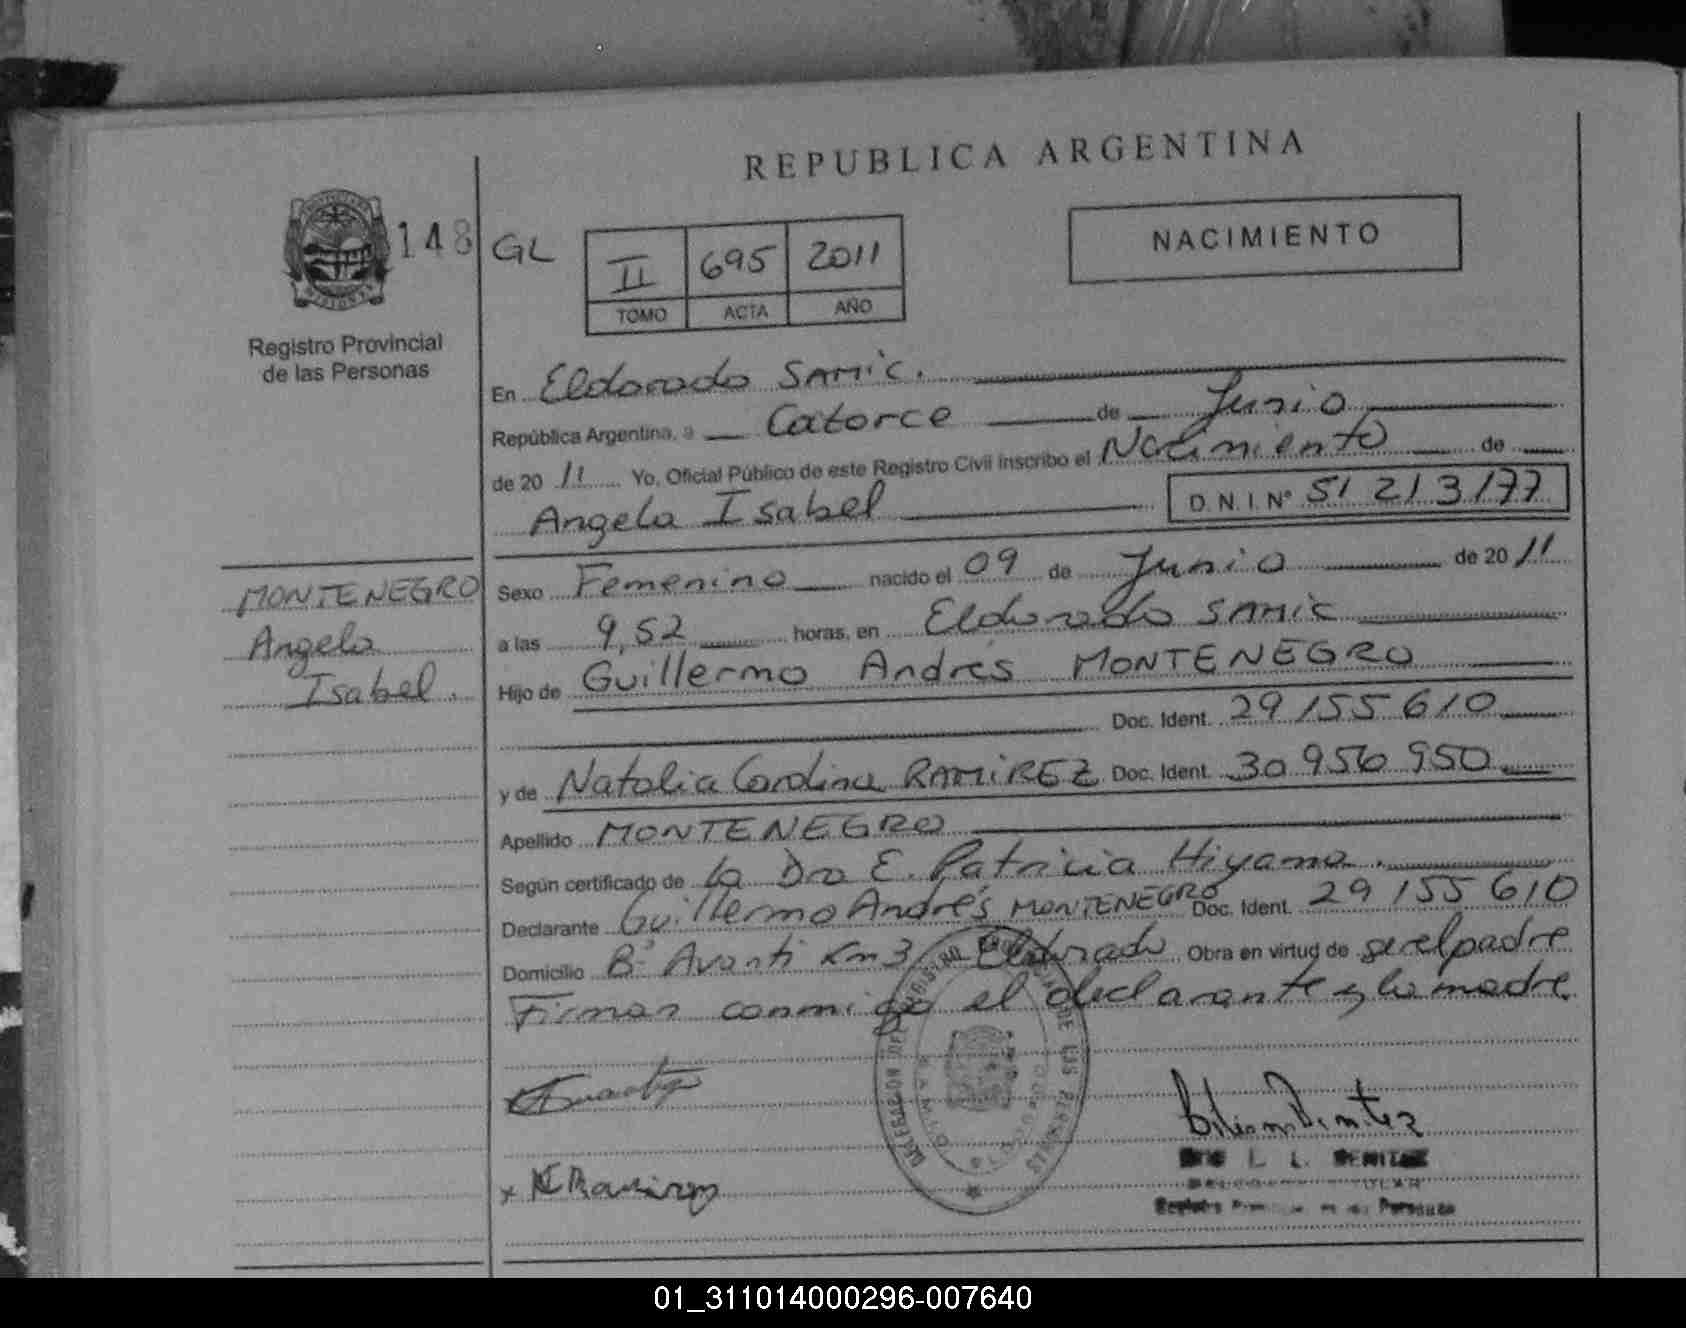 REPUBLICA ARGENTINA
148
GL
II 695 2011
TOMO ACTA AÑO
NACIMIENTO
Registro Provincial
de las Personas
En Eldorado SAMIC.
República Argentina, a Catorce de Junio
de 20 11 Yo, Oficial Público de este Registro Civil inscribo el Nacimiento de
Angela Isabel D.N.I. Nº 51 213 177
MONTENEGRO
Angela
Isabel.
Sexo Femenino nacido el 09 de Junio de 20 11
a las 9,52 horas, en Eldorado SAMIC
Hijo de Guillermo Andrés MONTENEGRO
Doc. Ident. 29 155 610
y de Natalia Carolina RAMIREZ Doc. Ident. 30 956 950
Apellido MONTENEGRO
Según certificado de la Dra E. Patricia Hiyama.
Declarante Guillermo Andrés MONTENEGRO Doc. Ident. 29 155 610
Domicilio Bº Avanti Km 3 Eldorado Obra en virtud de ser el padre
Firman conmigo el declarante y la madre
DELEGACION DEL REGISTRO DE LAS PERSONAS
x Ramirez
L. L. BENITEZ
TITULAR
Registro Personas
01_311014000296-007640